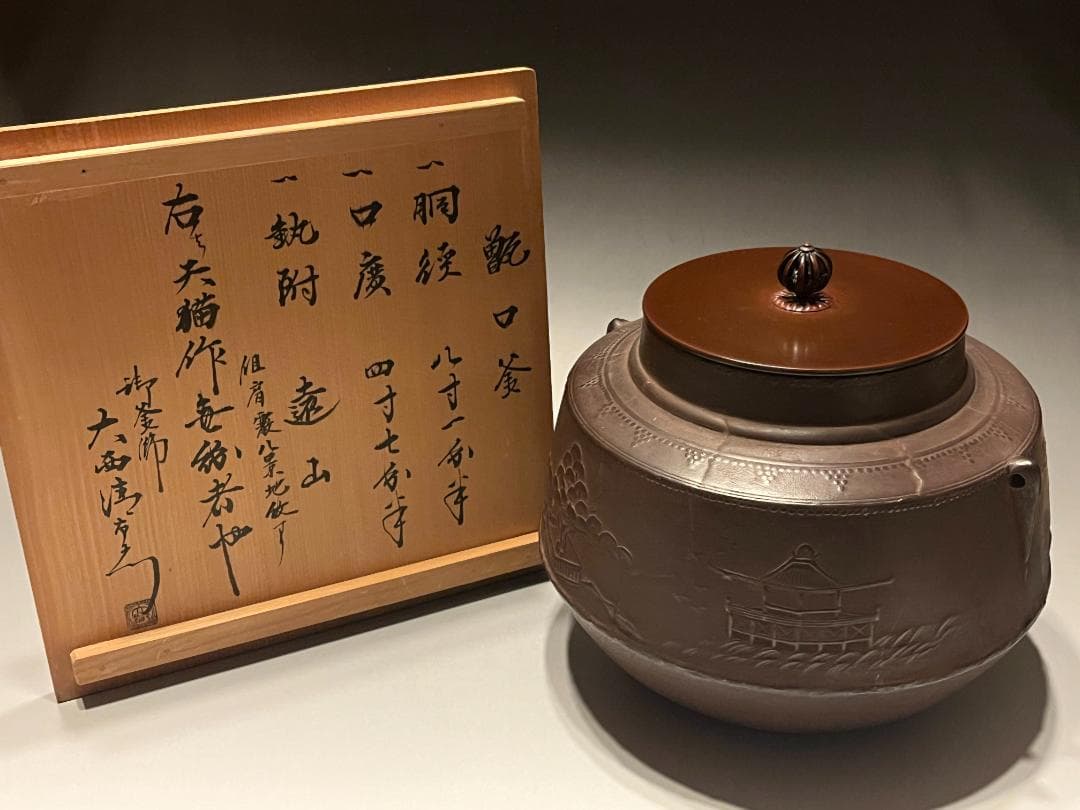 甑口釜
一胴径 八寸一分半
一口廣 四寸七分半
一執附 遠山
但肩霰八景地紋有
右ハ大猫作無紛者也
御釜師
大西浄